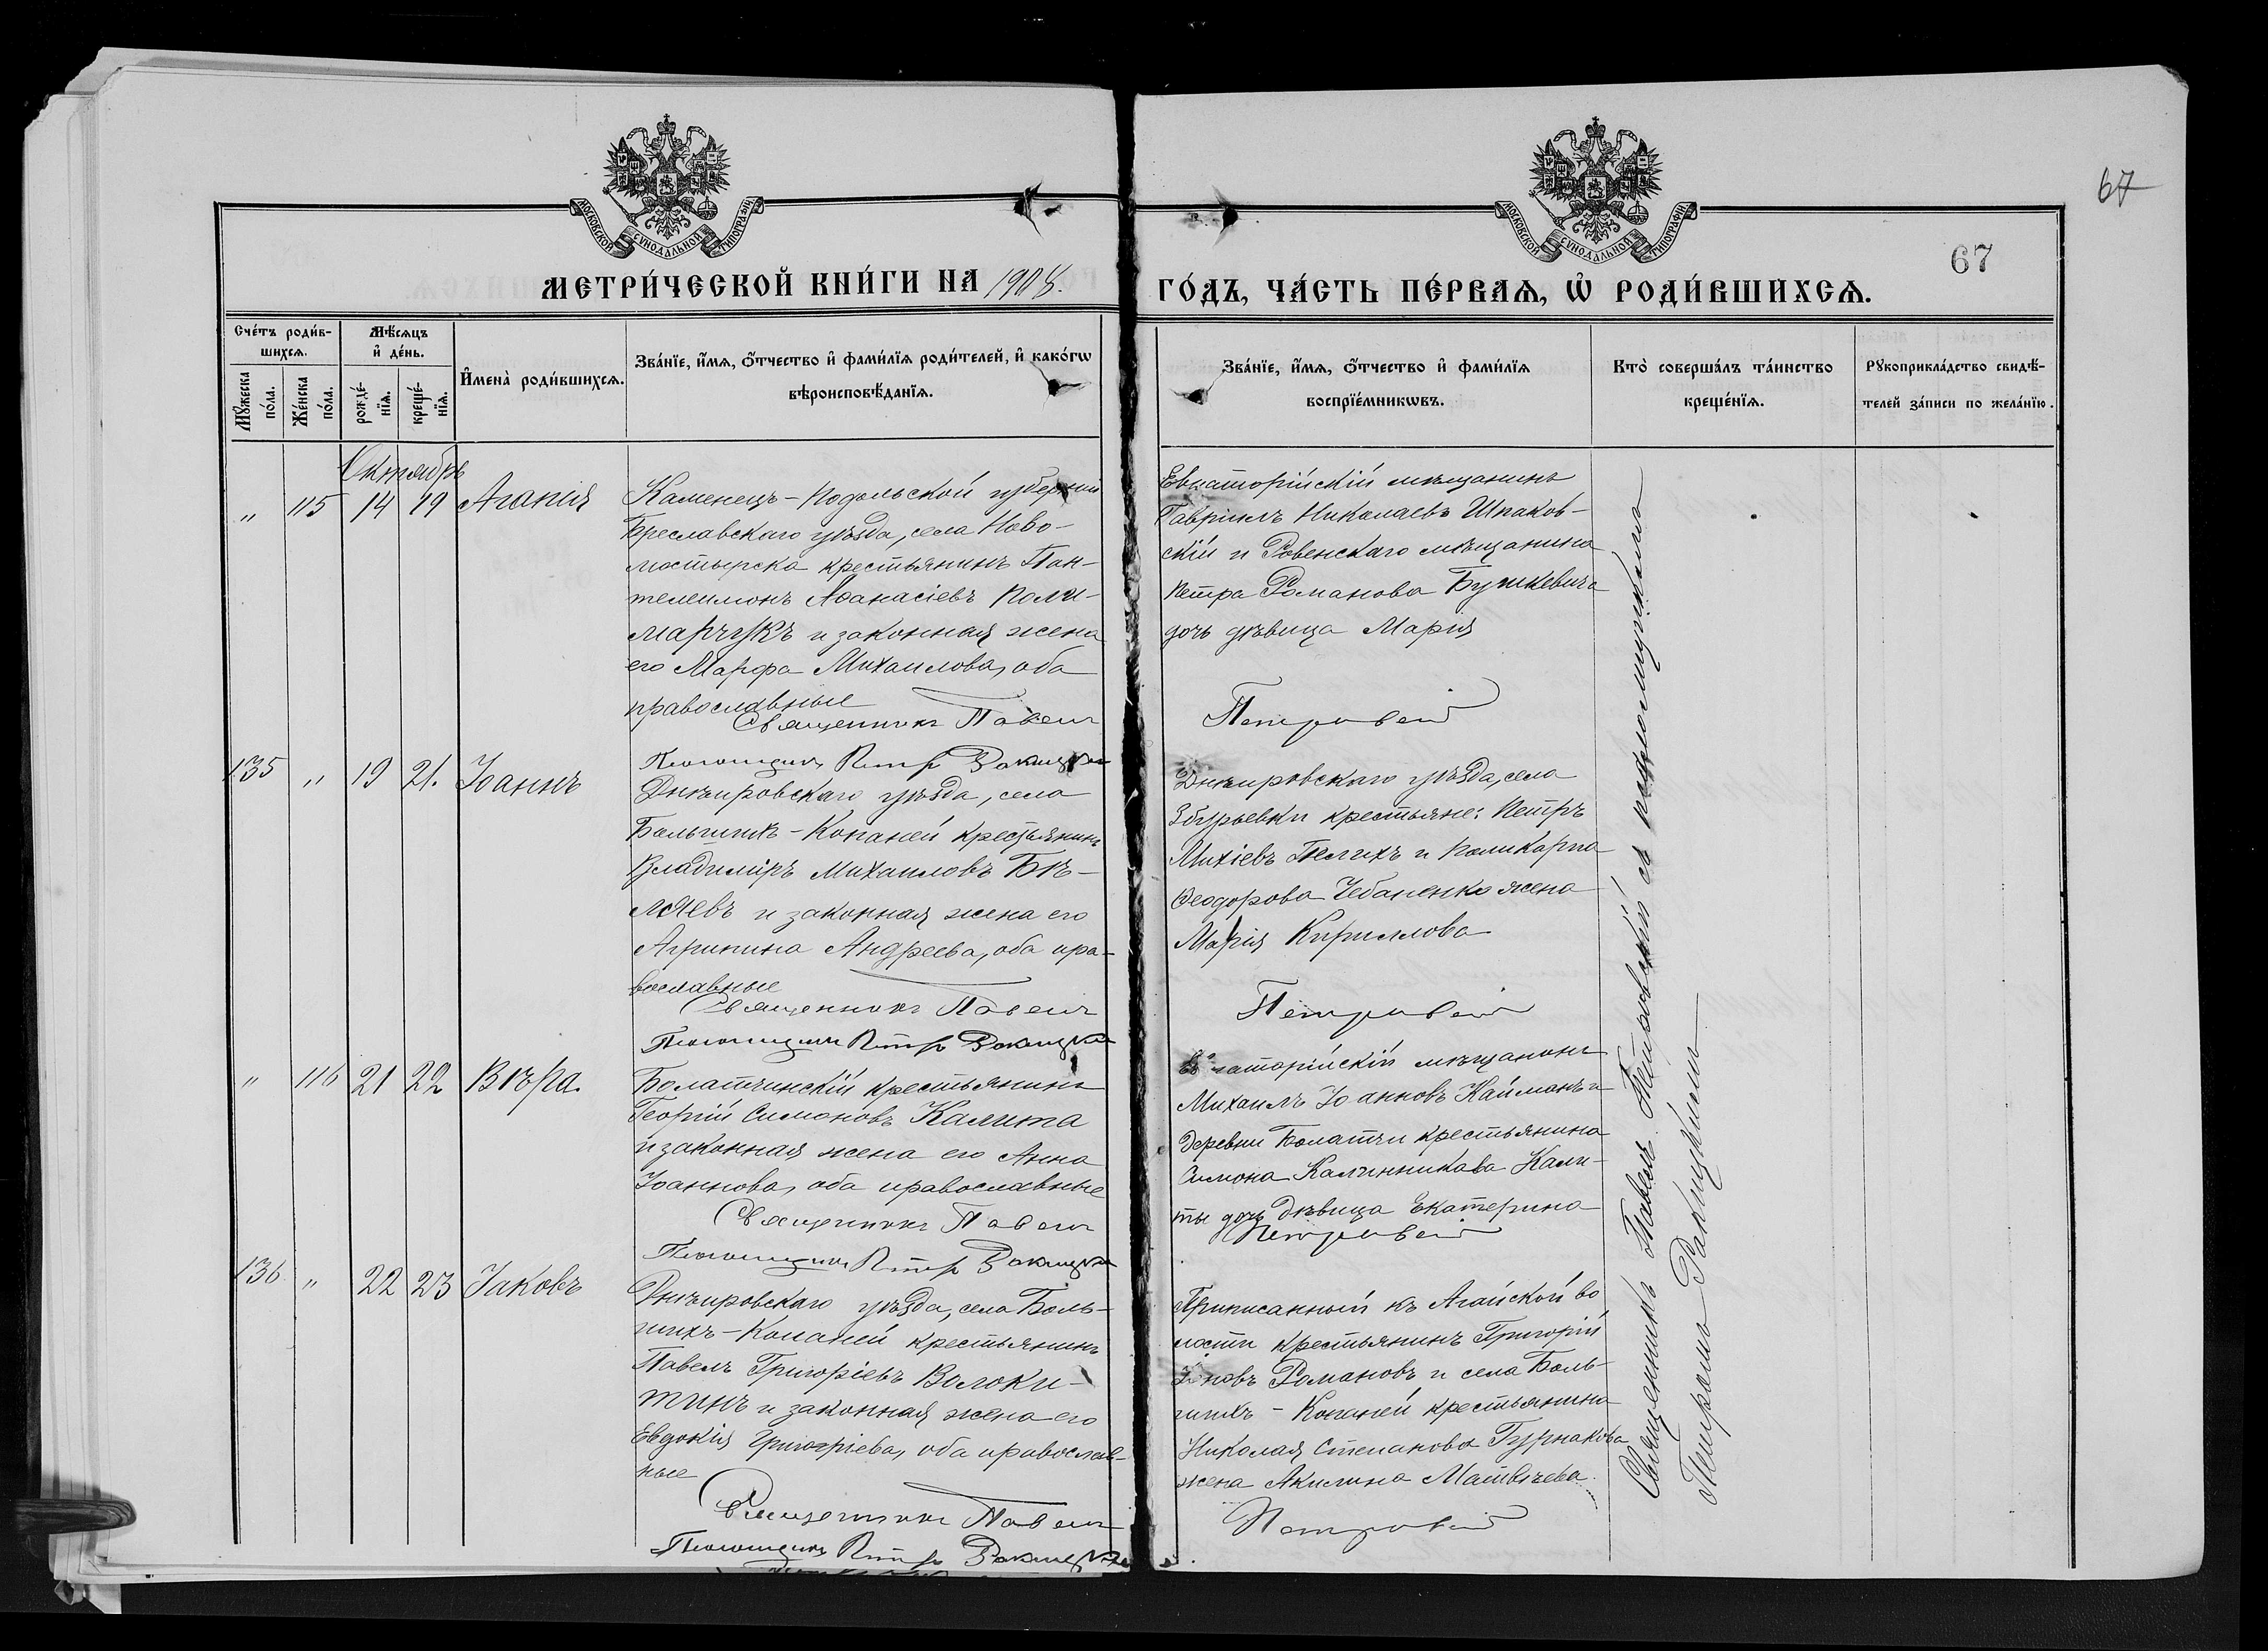 67
МОСКОВСКОЙ СУНОДАЛЬНОЙ ТИПОГРАФІИ
МОСКОВСКОЙ СУНОДАЛЬНОЙ ТИПОГРАФІИ
67
МЕТРИ́ЧЕСКОЙ КНИ́ГИ НА 1908.
ГО́ДЪ, ЧА́СТЬ ПЕ́РВАѦ, Ѡ҆ РОДИ́ВШИХСѦ.
Сче́тъ роди́в-
шихсѧ.
Мѣ́сѧцъ
и҆ де́нь.
Мꙋ́жеска
по́ла.
Же́нска
по́ла.
рожде́-
нїѧ.
креще́-
нїѧ.
И҆мена̀ роди́вшихсѧ.
Зва́нїе, и҆́мѧ, ѻ҆́тчество и҆ фами́лїѧ роди́телей, и҆ како́гѡ
вѣроисповѣ́данїѧ.
Зва́нїе, и҆́мѧ, ѻ҆́тчество и҆ фами́лїѧ
воспрїе́мникѡвъ.
Кто̀ соверша́лъ та́инство
креще́нїѧ.
Рꙋкоприкла́дство свидѣ́-
телей за́писи по жела́нїю.
Октябрь
" 115 14 19 Агапія
Каменецъ-Подольской губерніи
Бреславскаго уѣзда, села Ново-
мостырска крестьянинъ Пан-
телеимонъ Аѳанасіевъ Поли-
марчукъ и законная жена
его Марфа Михаилова, оба
православные
Священникъ Павелъ
Псаломщикъ Петръ Ракицкій
Евпаторійскій мѣщанинъ
Гавріилъ Николаевъ Шпаков-
скій и Ровенскаго мѣщанина
Петра Романова Бушкевича
дочь дѣвица Марія
Петровскій
135 " 19 21. Іоаннъ
Днѣпровскаго уѣзда, села
Большихъ-Копаней крестьянинъ
Владиміръ Михаиловъ Бѣ-
ляевъ и законная жена его
Агрипина Андреева, оба пра-
вославные
Священникъ Павелъ
Псаломщикъ Петръ Ракицкій
Днѣпровскаго уѣзда, села
Збурьевки крестьяне: Петръ
Михіевъ Белихъ и Поликарпа
Ѳеодорова Чебаненко жена
Марія Кириллова
Петровскій
" 116 21 22 Вѣра.
Болатчинскій крестьянинъ
Георгій Симоновъ Калита
и законная жена его Анна
Іоаннова, оба православные
Священникъ Павелъ
Псаломщикъ Петръ Ракицкій
Евпаторійскій мѣщанинъ
Михаилъ Іоанновъ Кайманъ и
деревни Болатчи крестьянина
Симона Калинникова Кали-
ты дочь дѣвица Екатерина
Петровскій
136 " 22 23 Іаковъ
Днѣпровскаго уѣзда, села Боль-
шихъ-Копаней крестьянинъ
Павелъ Григоріевъ Волоки-
тинъ и законная жена его
Евдокія Григоріева, оба православ-
ные
Священникъ Павелъ
Псаломщикъ Петръ Ракицкій
Приписанный къ Агайской во
лости крестьянинъ Григорій
Романовъ и села Боль-
шихъ - Копаней крестьянина
Николая Степанова Бурнакова
жена Акилина Матвѣева.
Петровскій
Священникъ Павелъ Петровскій съ псаломщикомъ
Петромъ Ракицкимъ